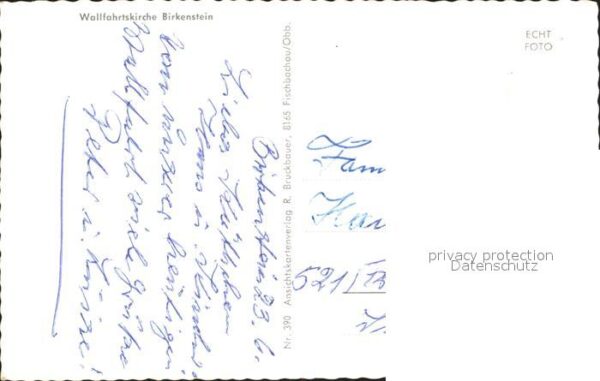 Wallfahrtskirche Birkenstein
ECHT
FOTO
Birkenstein 23. 6.
Liebes
Hans u. Kinder!
Von unserer heutigen
Wallfahrt viele Grüße
Peter u.
Nr. 390 Ansichtskartenverlag R. Bruckbauer, 8165 Fischbachau/Obb.
Fam
521
privacy protection
Datenschutz